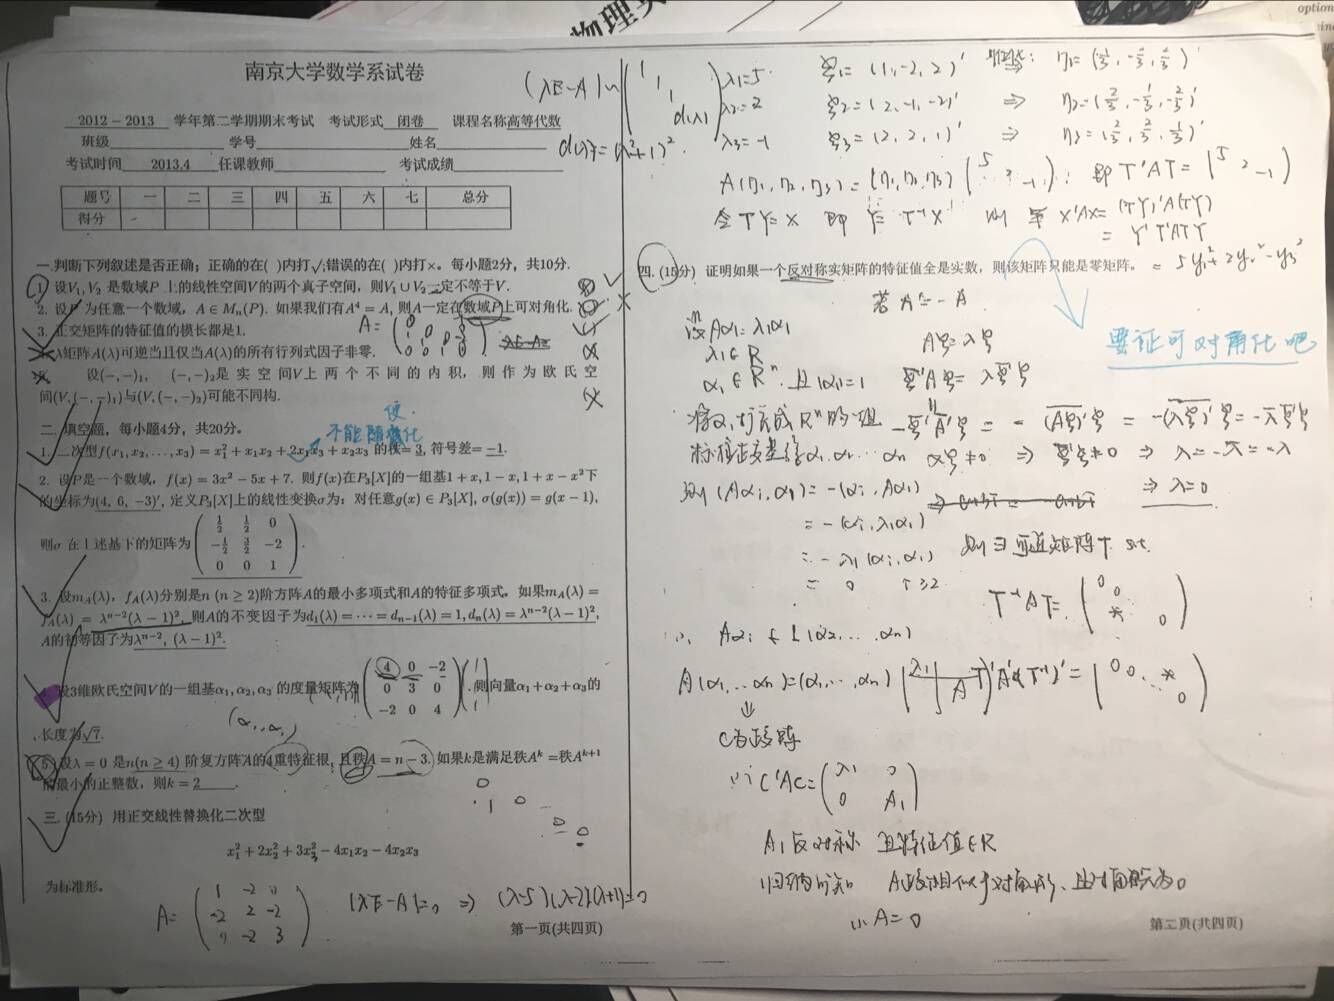 南京大学数学系试卷
2012 − 2013 学年第二学期期末考试 考试形式 闭卷 课程名称高等代数
班级 学号 姓名
考试时间 2013.4 任课教师 考试成绩
题号 一 二 三 四 五 六 七 总分
得分
一.判断下列叙述是否正确; 正确的在( )内打√;错误的在( )内打×。每小题2分, 共10分.
1. 设V₁,V₂ 是数域P 上的线性空间V的两个真子空间, 则V₁∪V₂一定不等于V.
2. 设P 为任意一个数域, A∈Mₙ(P). 如果我们有A⁴ = A, 则A一定在数域P上可对角化.
3. 正交矩阵的特征值的模长都是1.
λ矩阵A(λ)可逆当且仅当A(λ)的所有行列式因子非零.
设(−,−)₁, (−,−)₂是实空间V上两个不同的内积, 则作为欧氏空
间(V,(−,−)₁)与(V,(−,−)₂)可能不同构.
不能随便化
二. 填空题, 每小题4分, 共20分。
1. 二次型f(x₁,x₂,...,x₃) = x₁² + x₁x₂ + 2x₁x₃ + x₂x₃ 的秩= 3, 符号差= −1.
2. 设P是一个数域, f(x) = 3x² − 5x + 7. 则f(x)在P₃[X]的一组基1 + x, 1 − x, 1 + x − x²下
的坐标为(4, 6, −3)′, 定义P₃[X]上的线性变换σ为: 对任意g(x) ∈ P₃[X], σ(g(x)) = g(x − 1),
则σ 在上述基下的矩阵为
½ ½ 0
−½ 3/2 −2
0 0 1
3. 设m_A(λ), f_A(λ)分别是n (n ≥ 2)阶方阵A的最小多项式和A的特征多项式. 如果m_A(λ) =
f_A(λ) = λⁿ⁻²(λ − 1)², 则A的不变因子为d₁(λ) = ⋯ = dₙ₋₁(λ) = 1, dₙ(λ) = λⁿ⁻²(λ − 1)²,
A的初等因子为λⁿ⁻², (λ − 1)².
设3维欧氏空间V的一组基α₁,α₂,α₃ 的度量矩阵为
4 0 −2
0 3 0
−2 0 4
. 则向量α₁+α₂+α₃的
长度为√7.
5. 设λ = 0 是n(n ≥ 4) 阶复方阵A的4重特征根, 且秩A = n − 3. 如果k是满足秩Aᵏ =秩Aᵏ⁺¹
的最小的正整数, 则k = 2 .
三. (15分) 用正交线性替换化二次型
x₁² + 2x₂² + 3x₃² − 4x₁x₂ − 4x₂x₃
为标准形。
A=
1 -2 0
-2 2 -2
0 -2 3
|λE-A|=0 ⇒ (λ-5)(λ-2)(λ+1)=0
第一页(共四页)
(λE-A)~
1
1
1
d(λ)
d(λ)=(λ²+1)².
λ₁=5 ξ₁=(1,-2,2)′ η₁=(1/3,-2/3,2/3)′
λ₂=2 ξ₂=(2,-1,-2)′ ⇒ η₂=(2/3,-1/3,-2/3)′
λ₃=-1 ξ₃=(2,2,1)′ ⇒ η₃=(2/3,2/3,1/3)′
A(η₁,η₂,η₃)=(η₁,η₂,η₃)(5 2 -1), 即T′AT=(5 2 -1)
令TY=X 即Y=T⁻¹X 则 X′AX=(TY)′A(TY)
= Y′T′ATY
= 5y₁²+2y₂²-y₃²
四. (15分) 证明如果一个反对称实矩阵的特征值全是实数, 则该矩阵只能是零矩阵。
要证可对角化吧
若A′=-A
设Aα₁=λ₁α₁
λ₁∈R
α₁∈Rⁿ 且|α₁|=1
Aξ=λξ
ξ̄′Aξ=λξ̄′ξ
将α₁扩充成Rⁿ的一组
标准正交基α₁,α₂…αₙ
-ξ̄′Ā′ξ = -(Aξ)′ξ = -(λξ)′ξ = -λ̄ξ̄′ξ
ξ≠0 ⇒ ξ̄′ξ≠0 ⇒ λ=-λ̄=-λ
⇒ λ=0
则(Aαᵢ,α₁)=-(αᵢ,Aα₁)
=-(αᵢ,λ₁α₁)
=-λ₁(αᵢ,α₁)
= 0 i≥2
则∃可逆矩阵T s.t.
T⁻¹AT=
∴ Aαᵢ∈L(α₂,…,αₙ)
A(α₁…αₙ)=(α₁,…,αₙ)
C为正交阵
∴ C′AC=
λ₁ 0
0 A₁
A₁反对称 且特征值∈R
归纳可知 A正交相似于对角形, 且对角
∴ A=0
第二页(共四页)